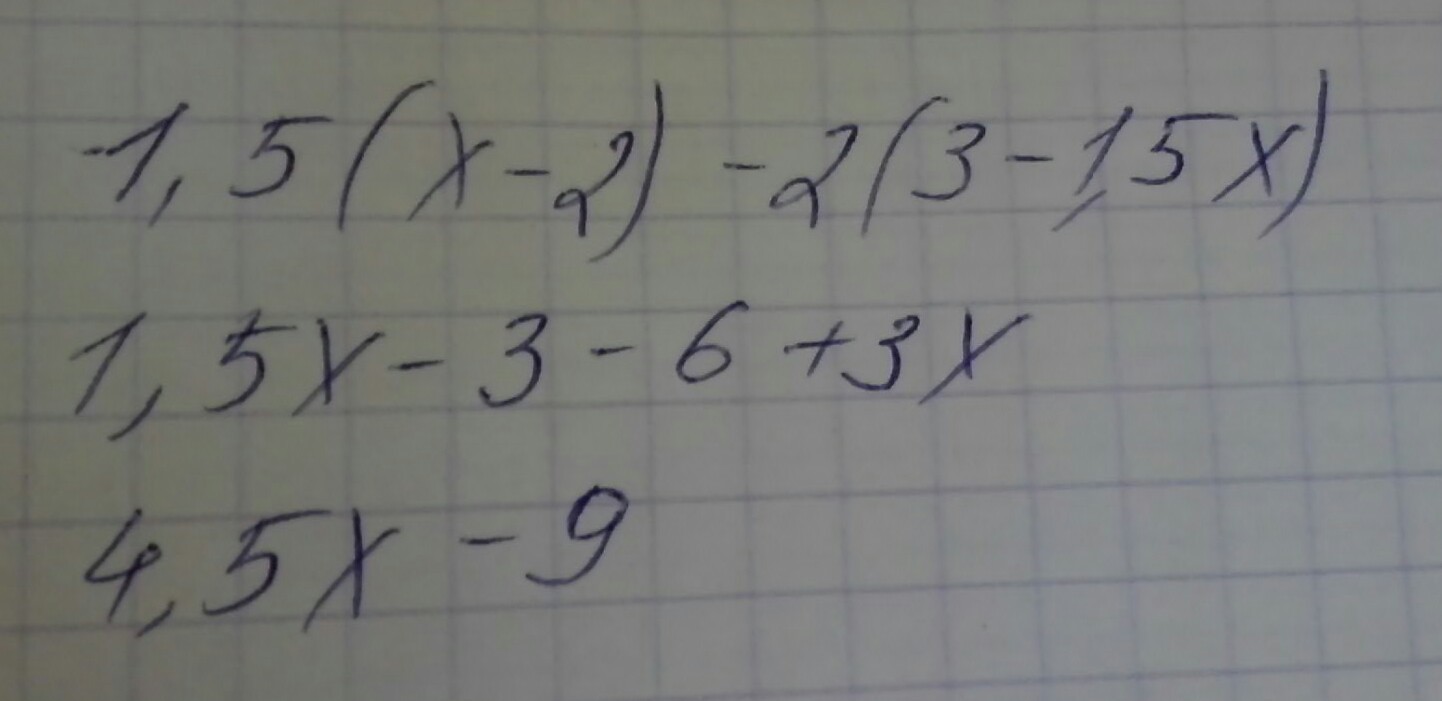 -1,5(x-2)-2(3-1,5x)
1,5x-3-6+3x
4,5x-9